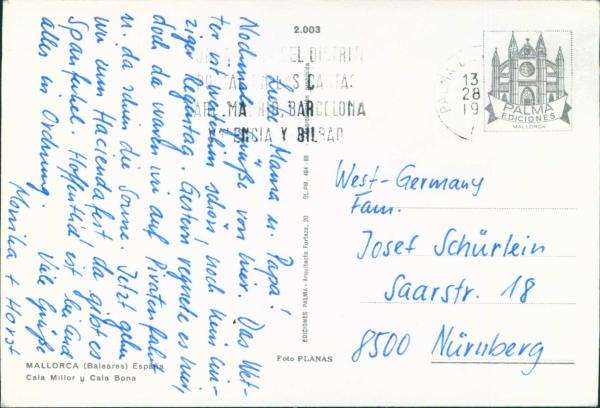 2.003
DEL DISTRITO
POSTAL EN LAS CARTAS
PARA MADRID BARCELONA
VALENCIA Y BILBAO
PALMA
13
28
19
PALMA
EDICIONES
MALLORCA
Liebe Mama u. Papa!
Nochmals Grüße von hier. Das Wet-
ter ist weiterhin schön, noch kein ein-
ziger Regentag. Gestern regnete es hier,
doch da waren wir auf Piratenfahrt
u. da schien die Sonne. Jetzt gehen
wir zum Haciendafest da gibt es
Spanferkel. Hoffentlich ist bei Euch
alles in Ordnung. Viele Grüße
Monika + Horst
EDICIONES PALMA - Arquitecto Forteza, 20
DL.PM. 494 - 68
West-Germany
Fam.
Josef Schürlein
Saarstr. 18
8500 Nürnberg
MALLORCA (Baleares) España
Cala Millor y Cala Bona
Foto PLANAS